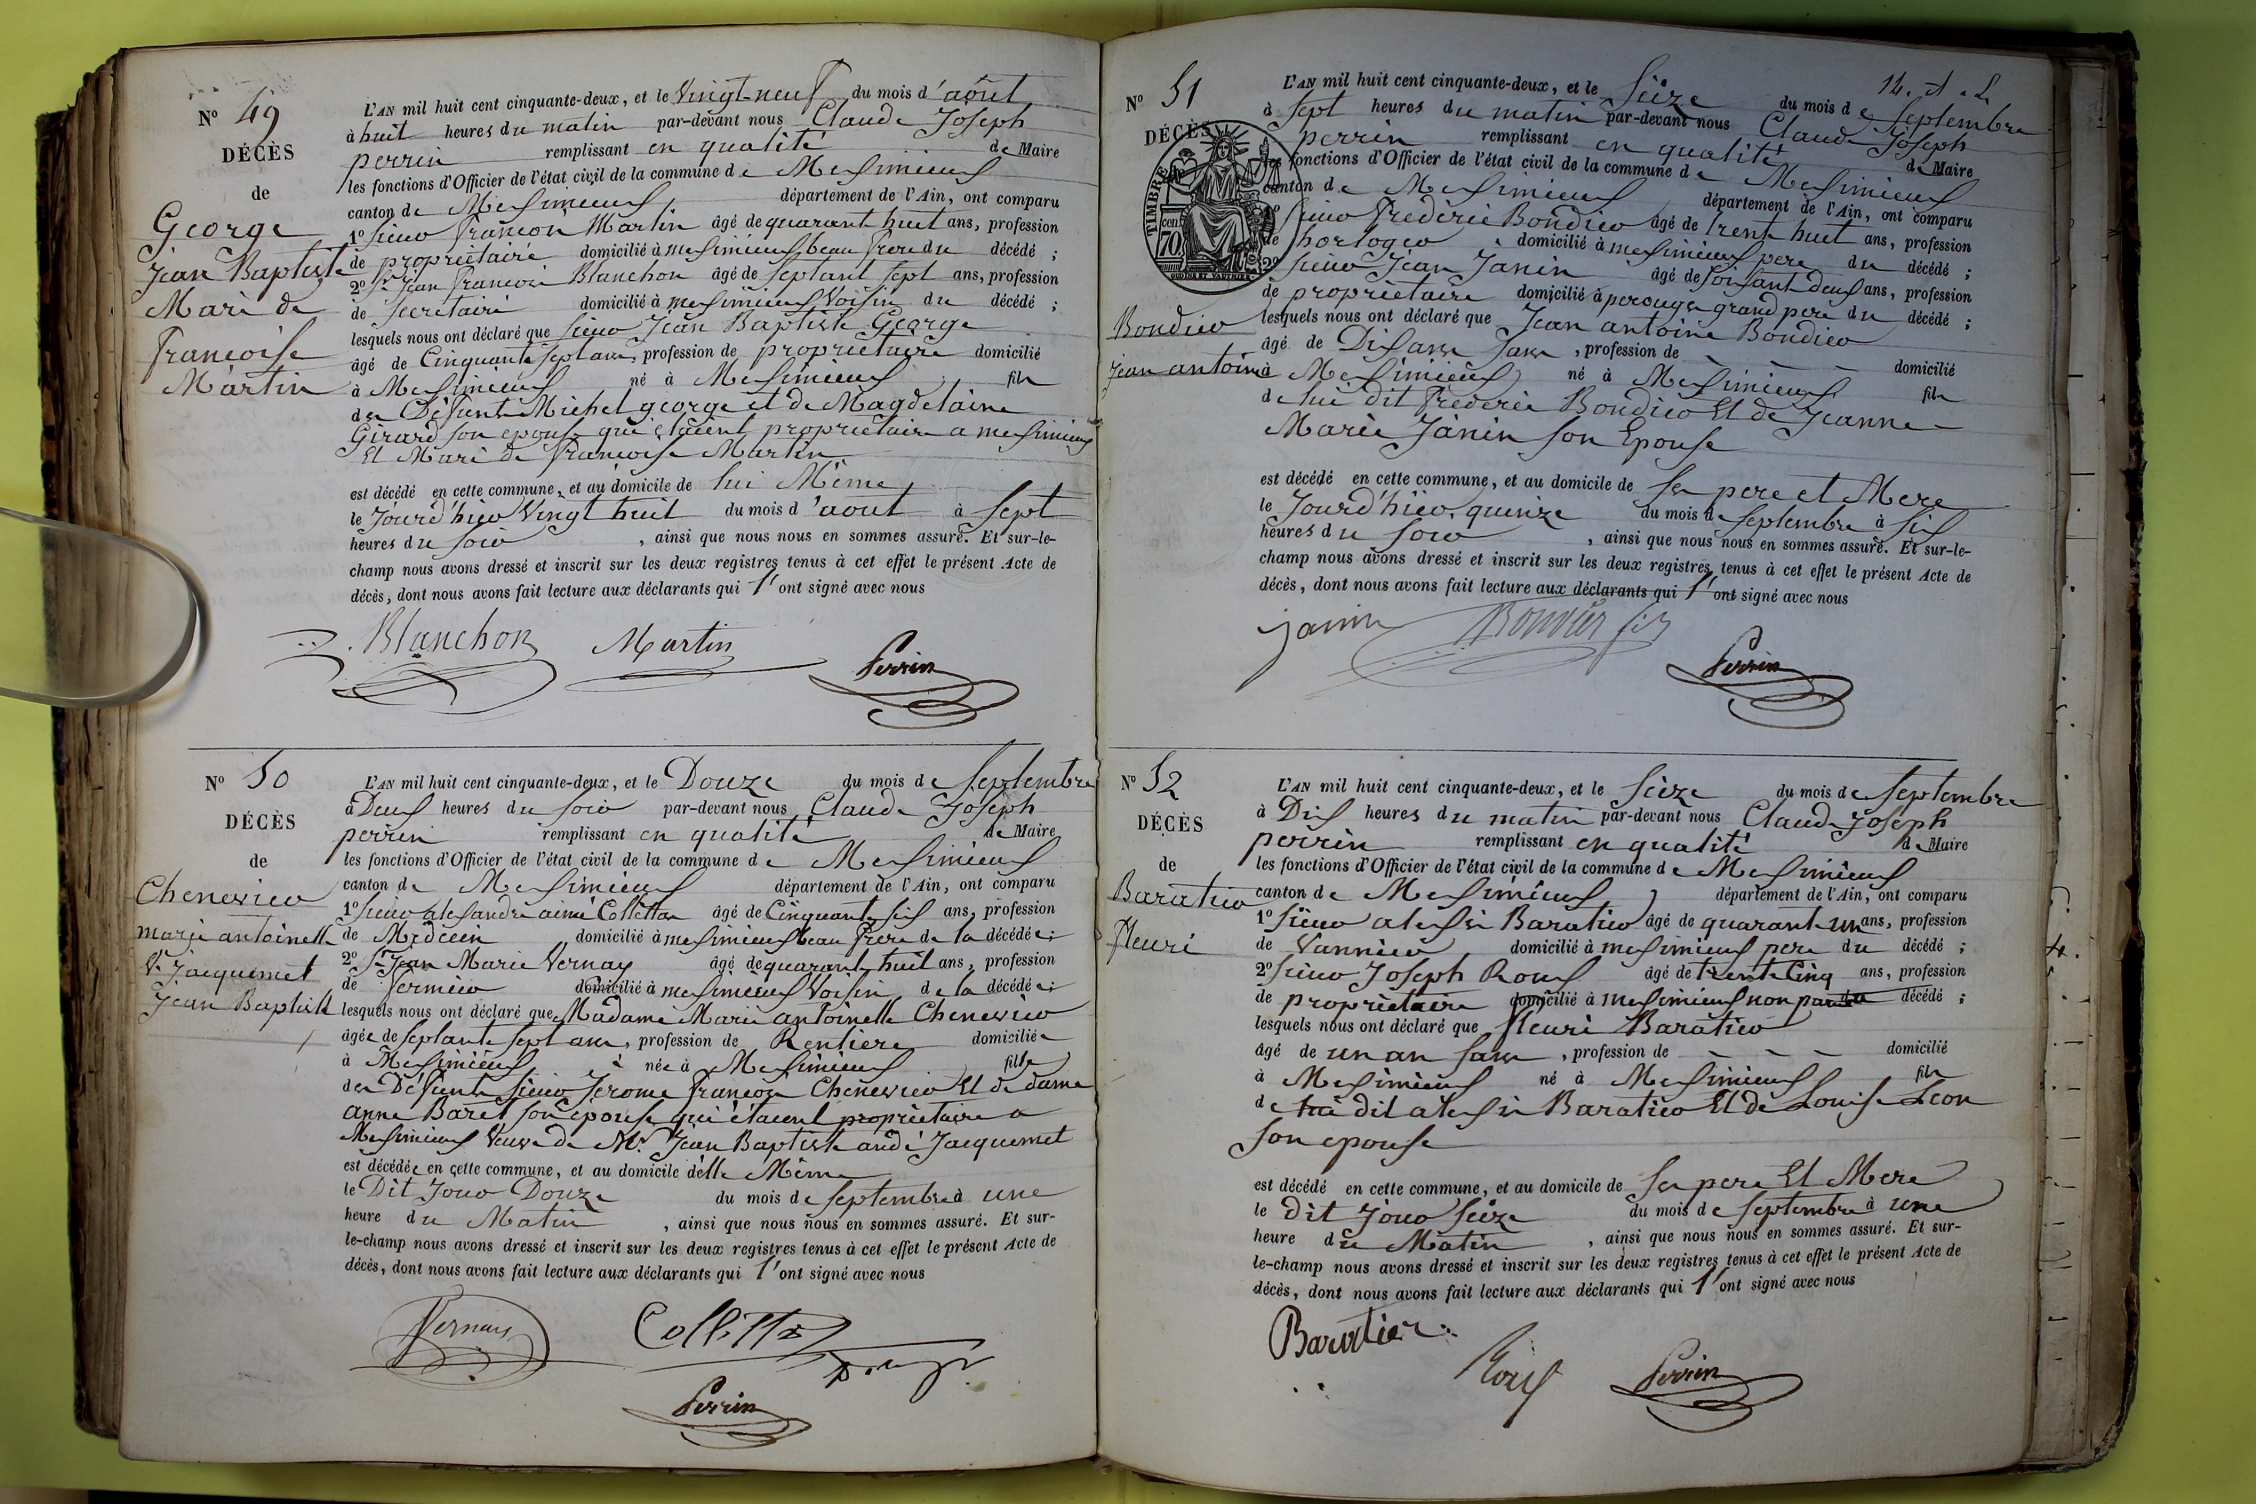 N° 49
DÉCÈS
de
George
Jean Baptiste
Mari de
Francoise
Martin
L'AN mil huit cent cinquante-deux, et le Vingt-neuf du mois d'août
à huit heures du matin par-devant nous Claude Joseph
perrin remplissant en qualité de Maire
les fonctions d'Officier de l'état civil de la commune de Meximieux
canton de Meximieux département de l'Ain, ont comparu
1° Sieur francois Martin âgé de quarant huit ans, profession
de propriétairé domicilié à meximieux beau frere du décédé ;
2° Sr Jean francois Blanchon âgé de septant sept ans, profession
de Secretairé domicilié à meximieux Voisin du décédé ;
lesquels nous ont déclaré que Sieur Jean Baptiste George
âgé de Cinquante sept ans, profession de propriétaire domicilié
à Meximieux né à Meximieux fils
des Défunts Michel george et de Magdelaine
Girard son epouse qui étaient propriétaire a meximieux
Et Mari de francoise Martin
est décédé en cette commune, et au domicile de lui Même
le Jourd'hier Vingt huit du mois d'aout à Sept
heures du soir , ainsi que nous nous en sommes assuré. Et sur-le-
champ nous avons dressé et inscrit sur les deux registres tenus à cet effet le présent Acte de
décès, dont nous avons fait lecture aux déclarants qui l'ont signé avec nous
Blanchon Martin Perrin
N° 50
DÉCÈS
de
Chenevier
marie antoinette
Ve Jacquemet
Jean Baptiste
L'AN mil huit cent cinquante-deux, et le Douze du mois de Septembre
à Deux heures du soir par-devant nous Claude Joseph
perrin remplissant en qualité de Maire
les fonctions d'Officier de l'état civil de la commune de Meximieux
canton de Meximieux département de l'Ain, ont comparu
1° Sieur alexandre aimé Collettaz âgé de Cinquante six ans, profession
de Médecin domicilié à meximieux beau frere de la décédée ;
2° Sr Jean Marie Vernay âgé de quarante huit ans, profession
de fermier domicilié à meximieux Voisin de la décédée ;
lesquels nous ont déclaré que Madame Marie antoinette Chenevier
âgée de septante sept ans, profession de Rentiere domiciliée
à Meximieux née à Meximieux fille
des Défunts Sieur Jerome francois Chenevier Et de dame
anne Baret son epouse qui étaient propriétaire a
Meximieux Veuve de Mr Jean Baptiste andé Jacquemet
est décédée en cette commune, et au domicile d'elle Même
le Dit Jour Douze du mois de septembre à une
heure du Matin , ainsi que nous nous en sommes assuré. Et sur-
le-champ nous avons dressé et inscrit sur les deux registres tenus à cet effet le présent Acte de
décès, dont nous avons fait lecture aux déclarants qui l'ont signé avec nous
Vernay Collettaz
Perrin
N° 51
DÉCÈS
TIMBRE
70
Bondier
jean antoine
L'AN mil huit cent cinquante-deux, et le Seize du mois de Septembre
à Sept heures du matin par-devant nous Claude Joseph
perrin remplissant en qualité de Maire
les fonctions d'Officier de l'état civil de la commune de Meximieux
canton de Meximieux département de l'Ain, ont comparu
1° Sieur frédéric Bondier âgé de trente huit ans, profession
de horloger domicilié à meximieux pere du décédé ;
2° Sieur Jean Janin âgé de Soixant deux ans, profession
de propriétaire domicilié à perouges grand pere du décédé ;
lesquels nous ont déclaré que Jean antoine Bondier
âgé de Dix ans , profession de domicilié
à Meximieux né à Meximieux fils
de lui dit frédéric Bondier Et de Jeanne
Marie Janin son Epouse
est décédé en cette commune, et au domicile de ses pere et Mere
le Jourd'hier quinze du mois de septembre à six
heures du soir , ainsi que nous nous en sommes assuré. Et sur-le-
champ nous avons dressé et inscrit sur les deux registres tenus à cet effet le présent Acte de
décès, dont nous avons fait lecture aux déclarants qui l'ont signé avec nous
janin Perrin
N° 52
DÉCÈS
de
Baratier
fleuri
L'AN mil huit cent cinquante-deux, et le Seize du mois de septembre
à Dix heures du matin par-devant nous Claude Joseph
perrin remplissant en qualité de Maire
les fonctions d'Officier de l'état civil de la commune de Meximieux
canton de Meximieux département de l'Ain, ont comparu
1° Sieur alexi Baratier âgé de quarant un ans, profession
de Vannier domicilié à meximieux pere du décédé ;
2° Sieur Joseph Roux âgé de trente Cinq ans, profession
de propriétaire domicilié à meximieux non parent décédé ;
lesquels nous ont déclaré que fleuri Baratier
âgé de un an , profession de domicilié
à Meximieux né à Meximieux fils
de lui dit alexi Baratier Et de Louise Leon
son epouse
est décédé en cette commune, et au domicile de ses pere Et Mere
le dit Jour seize du mois de septembre à une
heure du Matin , ainsi que nous nous en sommes assuré. Et sur-
le-champ nous avons dressé et inscrit sur les deux registres tenus à cet effet le présent Acte de
décès, dont nous avons fait lecture aux déclarants qui l'ont signé avec nous
Baratier
Roux Perrin